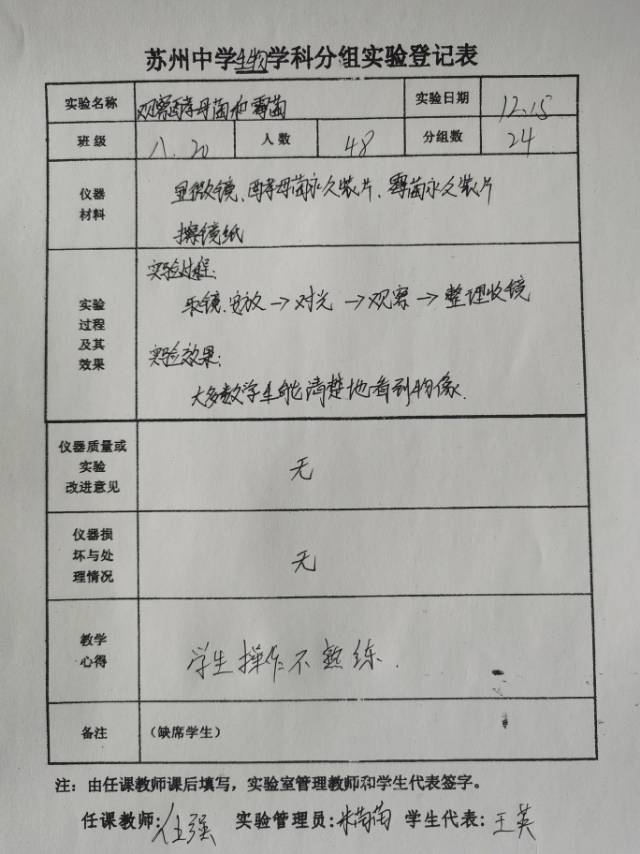 苏州中学生物学科分组实验登记表
实验名称 观察酵母菌和霉菌 实验日期 12.15
班级 八.20 人数 48 分组数 24
仪器
材料
显微镜、酵母菌永久装片、霉菌永久装片
擦镜纸
实验
过程
及其
效果
实验过程:
取镜、安放→对光→观察→整理收镜
实验效果:
大多数学生能清楚地看到物像.
仪器质量或
实验
改进意见
无
仪器损
坏与处
理情况
无
教学
心得
学生操作不熟练.
备注 (缺席学生)
注:由任课教师课后填写,实验室管理教师和学生代表签字。
任课教师:任强 实验管理员:米苗苗 学生代表:王英